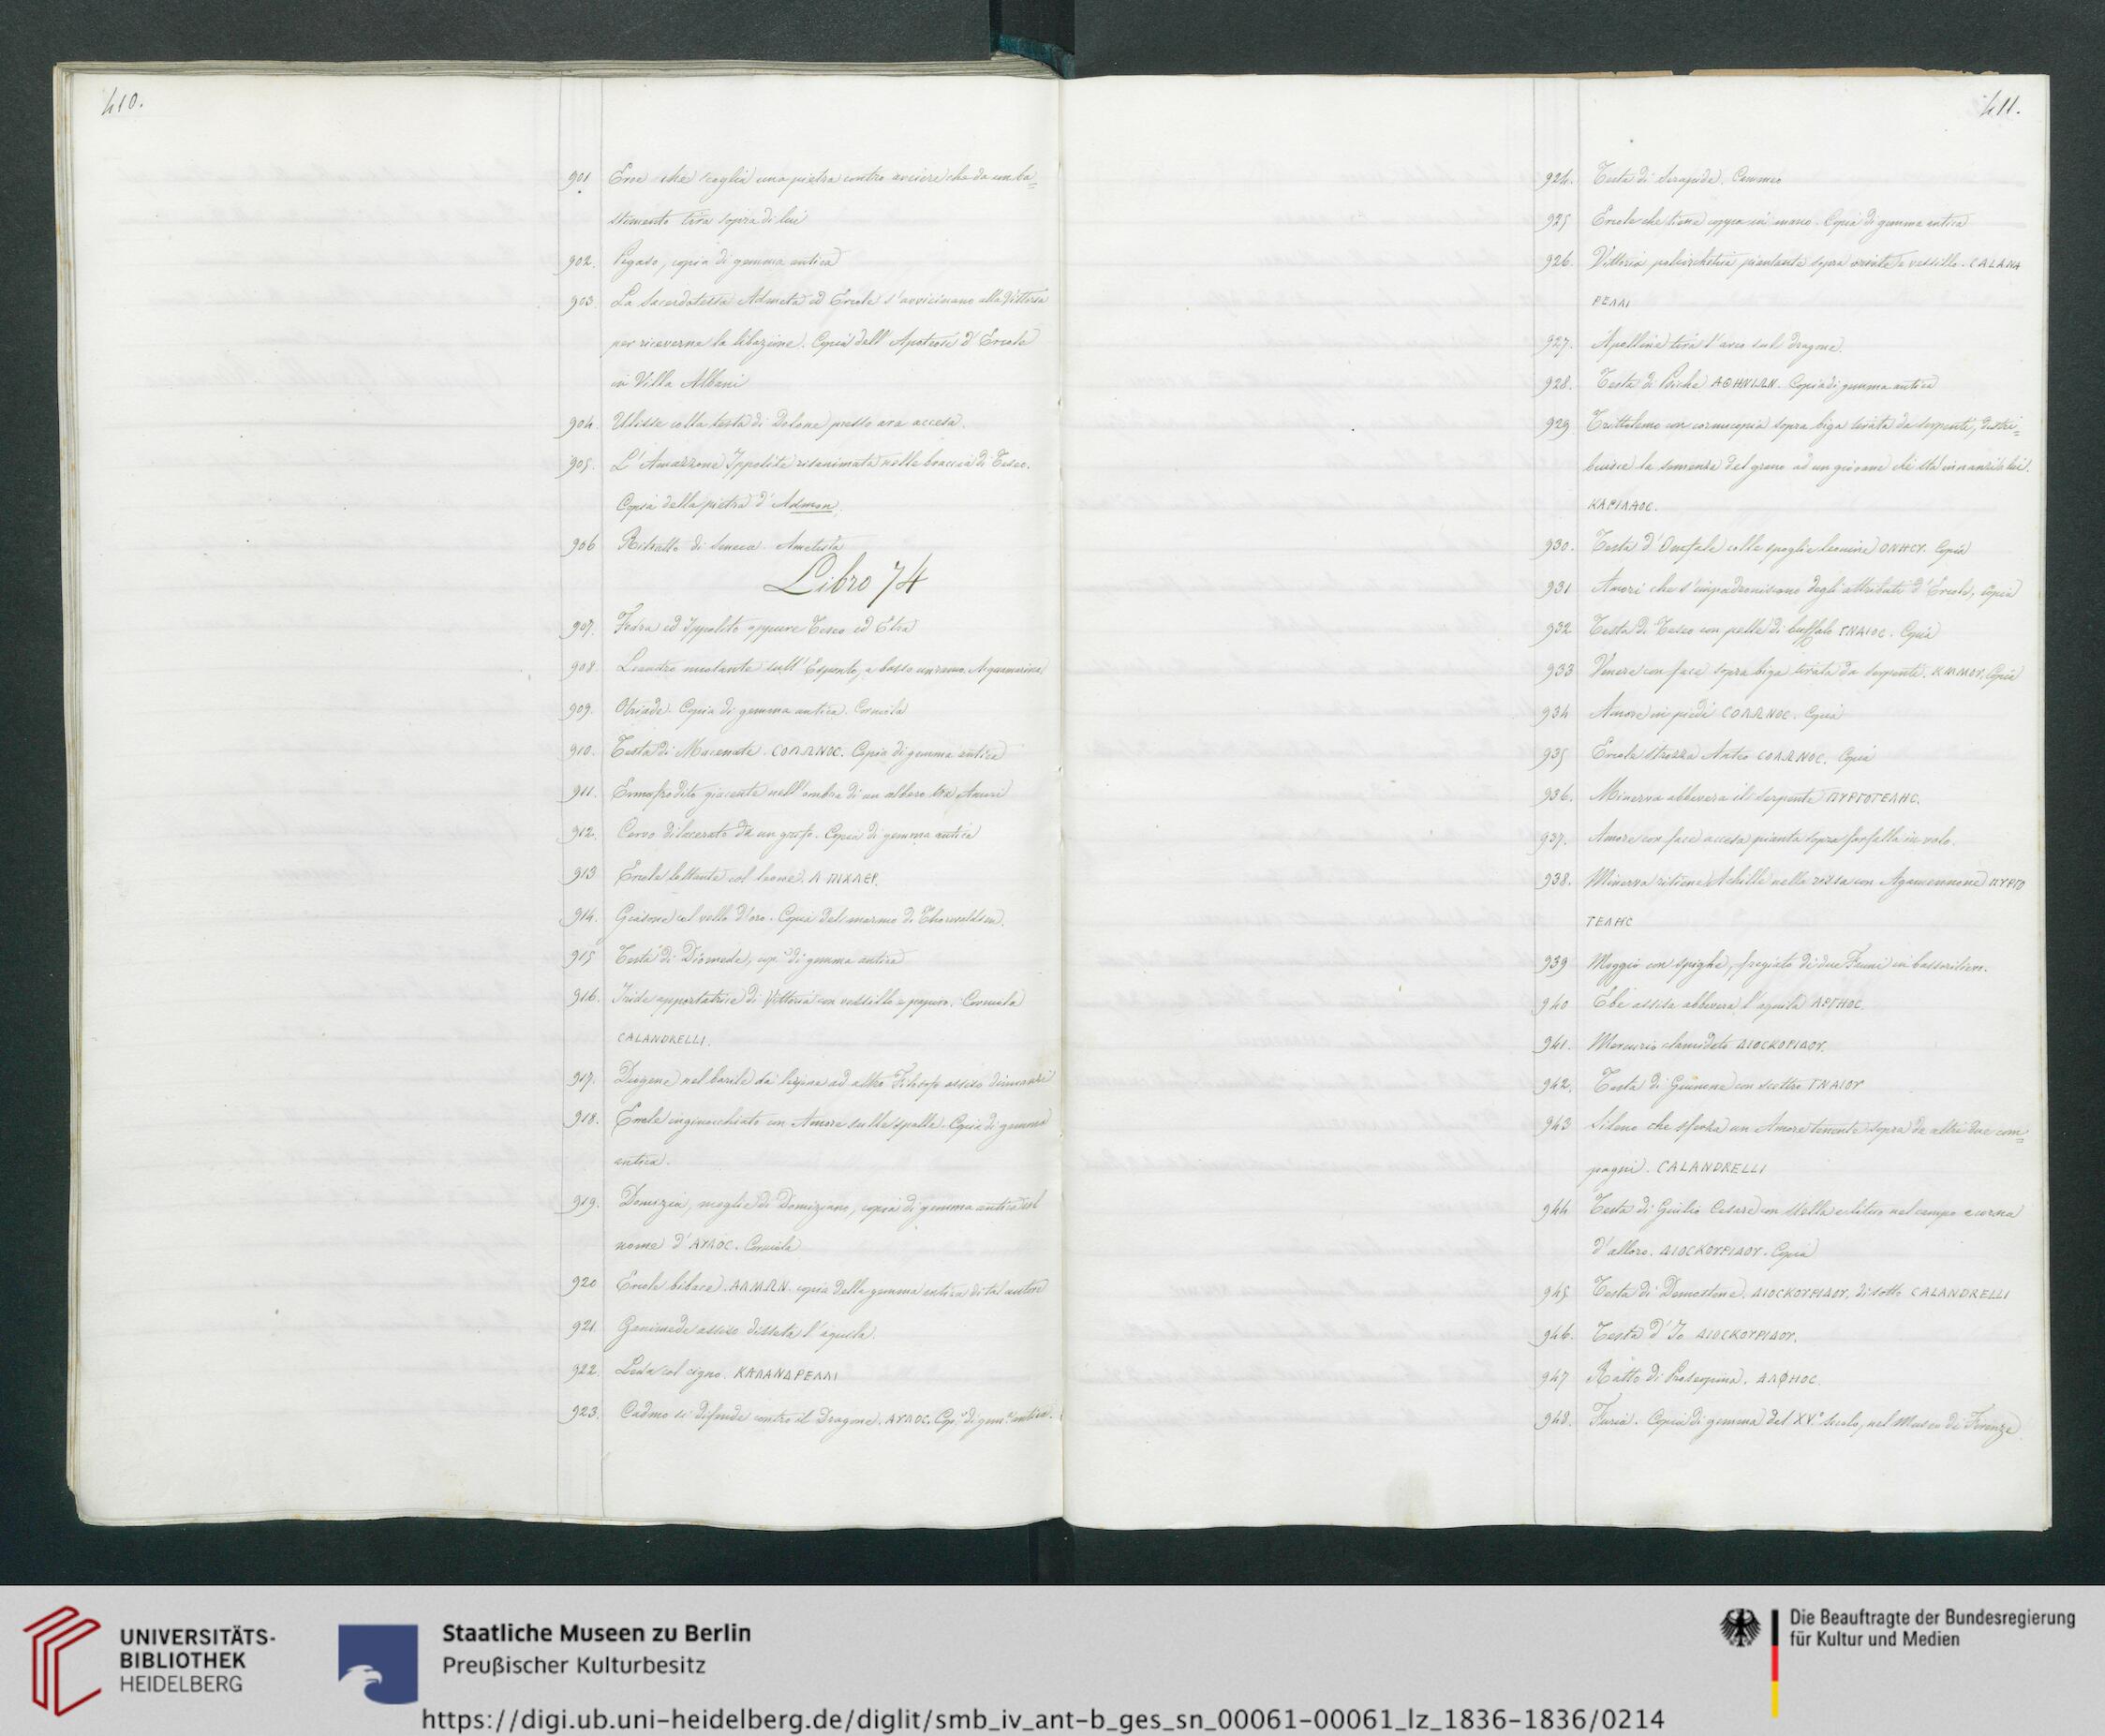 410.
901 Eroe che scaglia una pietra contro arciere che da un ba=
stimento tira sopra di lui
902. Pegaso, copia di gemma antica
903. La Sacerdotessa Admeta ed Ercole s'avvicinano alla Vittoria
per riceverne la libazione. Copia dell'Apoteosi d'Ercole
in Villa Albani
904. Ulisse colla testa di Dolone presso ara accesa.
905. L'Amazzone Ippolita rianimata nelle braccia di Teseo.
Copia della pietra d'Admon.
906 Ritratto di Seneca. Ametista
Libro 74
907. Fedra ed Ippolito oppure Teseo ed Etra
908. Leandro nuotante sull'Esponto, a basso un remo. Acquamarina
909. Otriade. Copia di gemma antica. Corniola
910. Testa di Mecenate. CΟΛΩΝΟC. Copia di gemma antica
911. Ermafrodito giacente nell'ombra di un albero tra Amori
912. Cervo dilacerato da un grifo. Copia di gemma antica
913 Ercole lottante col leone. Λ ΠΙΧΛΕΡ.
914. Giasone col vello d'oro. Copia del marmo di Thorwaldsen.
915 Testa di Diomede, cop.ª di gemma antica
916. Iride apportatrice di Vittoria con vessillo e papavero. Corniola
CALANDRELLI.
917. Diogene nel barile dà lezione ad altro Filosofo assiso dinnanzi
918. Ercole inginocchiato con Amore sulle spalle. Copia di gemma
antica.
919. Domizia, moglie di Domiziano, copia di gemma antica col
nome d'ΑΥΛΟC. Corniola
920 Ercole bibace. ΑΛΜΩΝ. copia della gemma antica di tal autore
921. Ganimede assiso disseta l'aquila.
922. Leda col cigno. ΚΑΛΑΝΔΡΕΛΛΙ
923. Cadmo si difende contro il Dragone. ΑΥΛΟC. Cop.ª di gem.ª antica.
411.
924. Testa di Serapide. Cammeo
925 Ercole che tiene coppa in mano. Copia di gemma antica
926. Vittoria piantante sopra vessillo. CALANΔ
ΡΕΛΛΙ
927. Apolline tira l'arco sul dragone.
928. Testa di Psiche ΑΘΗΝΙΩΝ. Copia di gemma antica
929 Trittolemo con cornucopia sopra biga tirata da serpenti, distri=
buisce la semenza del grano ad un giovane che stà innanzi a lui.
ΚΑΡΙΛΑΟC.
930. Testa d'Omfale colle spoglie leonine ΟΝΗCΥ. Copia
931 Amori che s'impadroniscono degli attributi d'Ercole, copia
932 Testa di Teseo con pelle di buffalo ΓΝΑΙΟC. Copia
933 Venere con face sopra biga tirata da serpenti. Copia
934 Amore in piedi CΟΛΩΝΟC. Copia
935 Ercole strozza Anteo CΟΛΩΝΟC. Copia
936. Minerva abbevera il serpente ΠΥΡΓΟΤΕΛΗC.
937. Amore con face accesa pianta sopra farfalla in volo.
938. Minerva ritiene Achille nella rissa con Agamennone ΠΥΡΓΟ
ΤΕΛΗC
939 Moggio con spighe, fregiato di due Fiumi in bassorilievo.
940 Ebe assisa abbevera l'aquila
941. Mercurio clamidato ΔΙΟCΚΟΡΙΔΟΥ.
942. Testa di Giunone con scettro ΓΝΑΙΟΥ
943 Sileno che sferza un Amore tenuto sopra da altri due com=
pagni. CALANDRELLI
944 Testa di Giulio Cesare con stella e lituo nel campo e corona
d'alloro. ΔΙΟCΚΟΥΡΙΔΟΥ. Copia
945 Testa di Demostene. ΔΙΟCΚΟΥΡΙΔΟΥ. di sotto CALANDRELLI
946. Testa d'Io ΔΙΟCΚΟΥΡΙΔΟΥ.
947 Ratto di Proserpina. ΑΛΦΗΟC.
948. Furia. Copia di gemma del XV.º Secolo, nel Museo di Firenze
UNIVERSITÄTS-
BIBLIOTHEK
HEIDELBERG
Staatliche Museen zu Berlin
Preußischer Kulturbesitz
Die Beauftragte der Bundesregierung
für Kultur und Medien
https://digi.ub.uni-heidelberg.de/diglit/smb_iv_ant-b_ges_sn_00061-00061_lz_1836-1836/0214